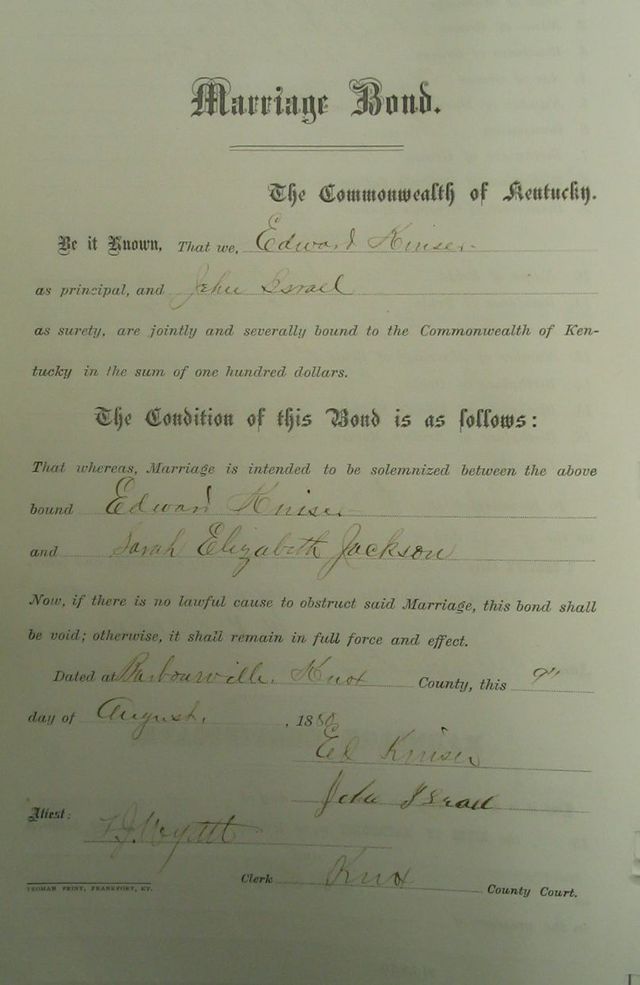 Marriage Bond.
The Commonwealth of Kentucky.
Be it Known, That we, Edward Kniser
as principal, and John Israel
as surety, are jointly and severally bound to the Commonwealth of Ken-
tucky in the sum of one hundred dollars.
The Condition of this Bond is as follows:
That whereas, Marriage is intended to be solemnized between the above
bound Edward Kniser
and Sarah Elizabeth Jackson
Now, if there is no lawful cause to obstruct said Marriage, this bond shall
be void; otherwise, it shall remain in full force and effect.
Dated at Barbourville, Knox County, this 9"
day of August, , 1880
Ed Kniser
John Israel
Attest:
Clerk Knox County Court.
YEOMAN PRINT, FRANKFORT, KY.